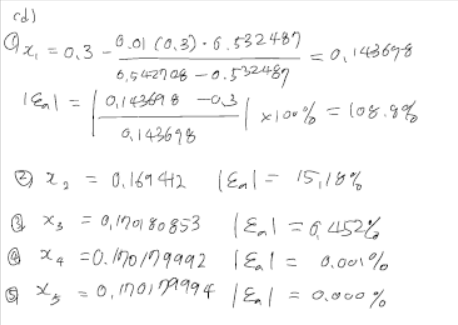 cd)
① x₁ = 0.3 - 0.01 (0.3) · 0.532487 / 0.542708 - 0.532487 = 0.143698
|εa| = | 0.143698 - 0.3 / 0.143698 | × 100% = 108.8%
② x₂ = 0.169412 |εa| = 15.18%
③ x₃ = 0.170180853 |εa| = 0.452%
④ x₄ = 0.170179992 |εa| = 0.001%
⑤ x₅ = 0.170179994 |εa| = 0.000%